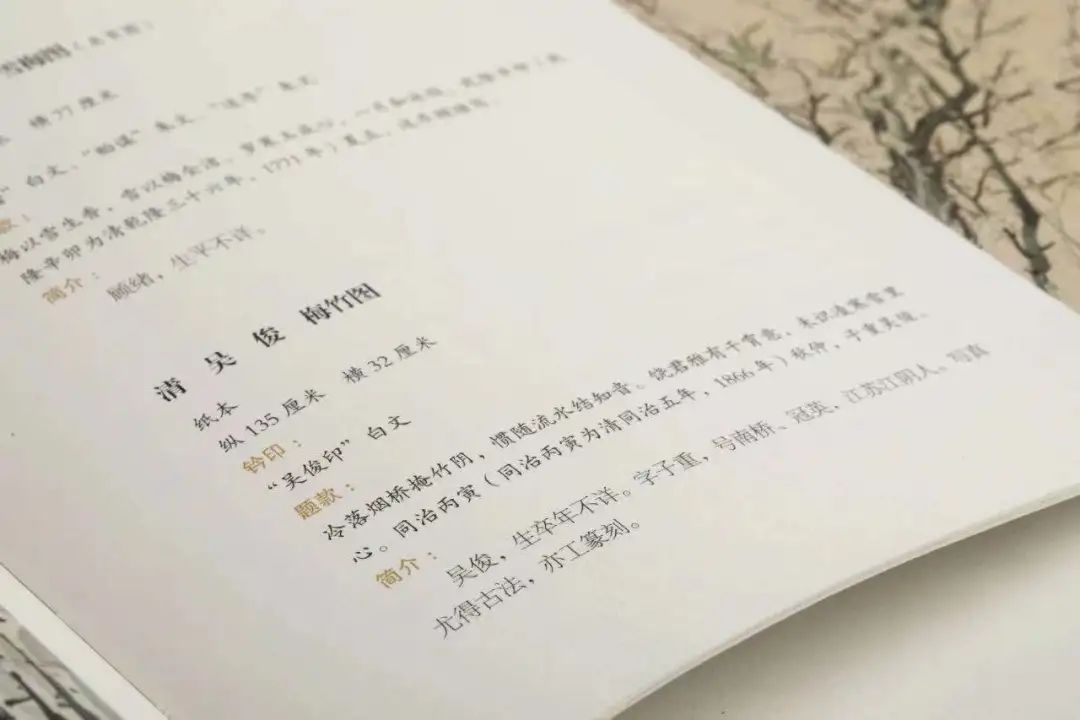 梅图
横77厘米
白文、 朱文、 朱文
款：
梅以雪生香，雪以梅全洁。
隆辛卯为清乾隆三十六年，1771年）夏
简介：
顾绪，生平不详。
清 吴俊 梅竹图
纸本
纵135厘米 横32厘米
钤印：
“吴俊印”白文
题款：
冷落烟桥掩竹阴，惯随流水结知音。饶君雅有干霄意，未识凌寒雪里
心。同治丙寅（同治丙寅为清同治五年，1866年）秋仲，子重吴俊。
简介：
吴俊，生卒年不详。字子重，号南桥、冠英，江苏江阴人。写真
尤得古法，亦工篆刻。